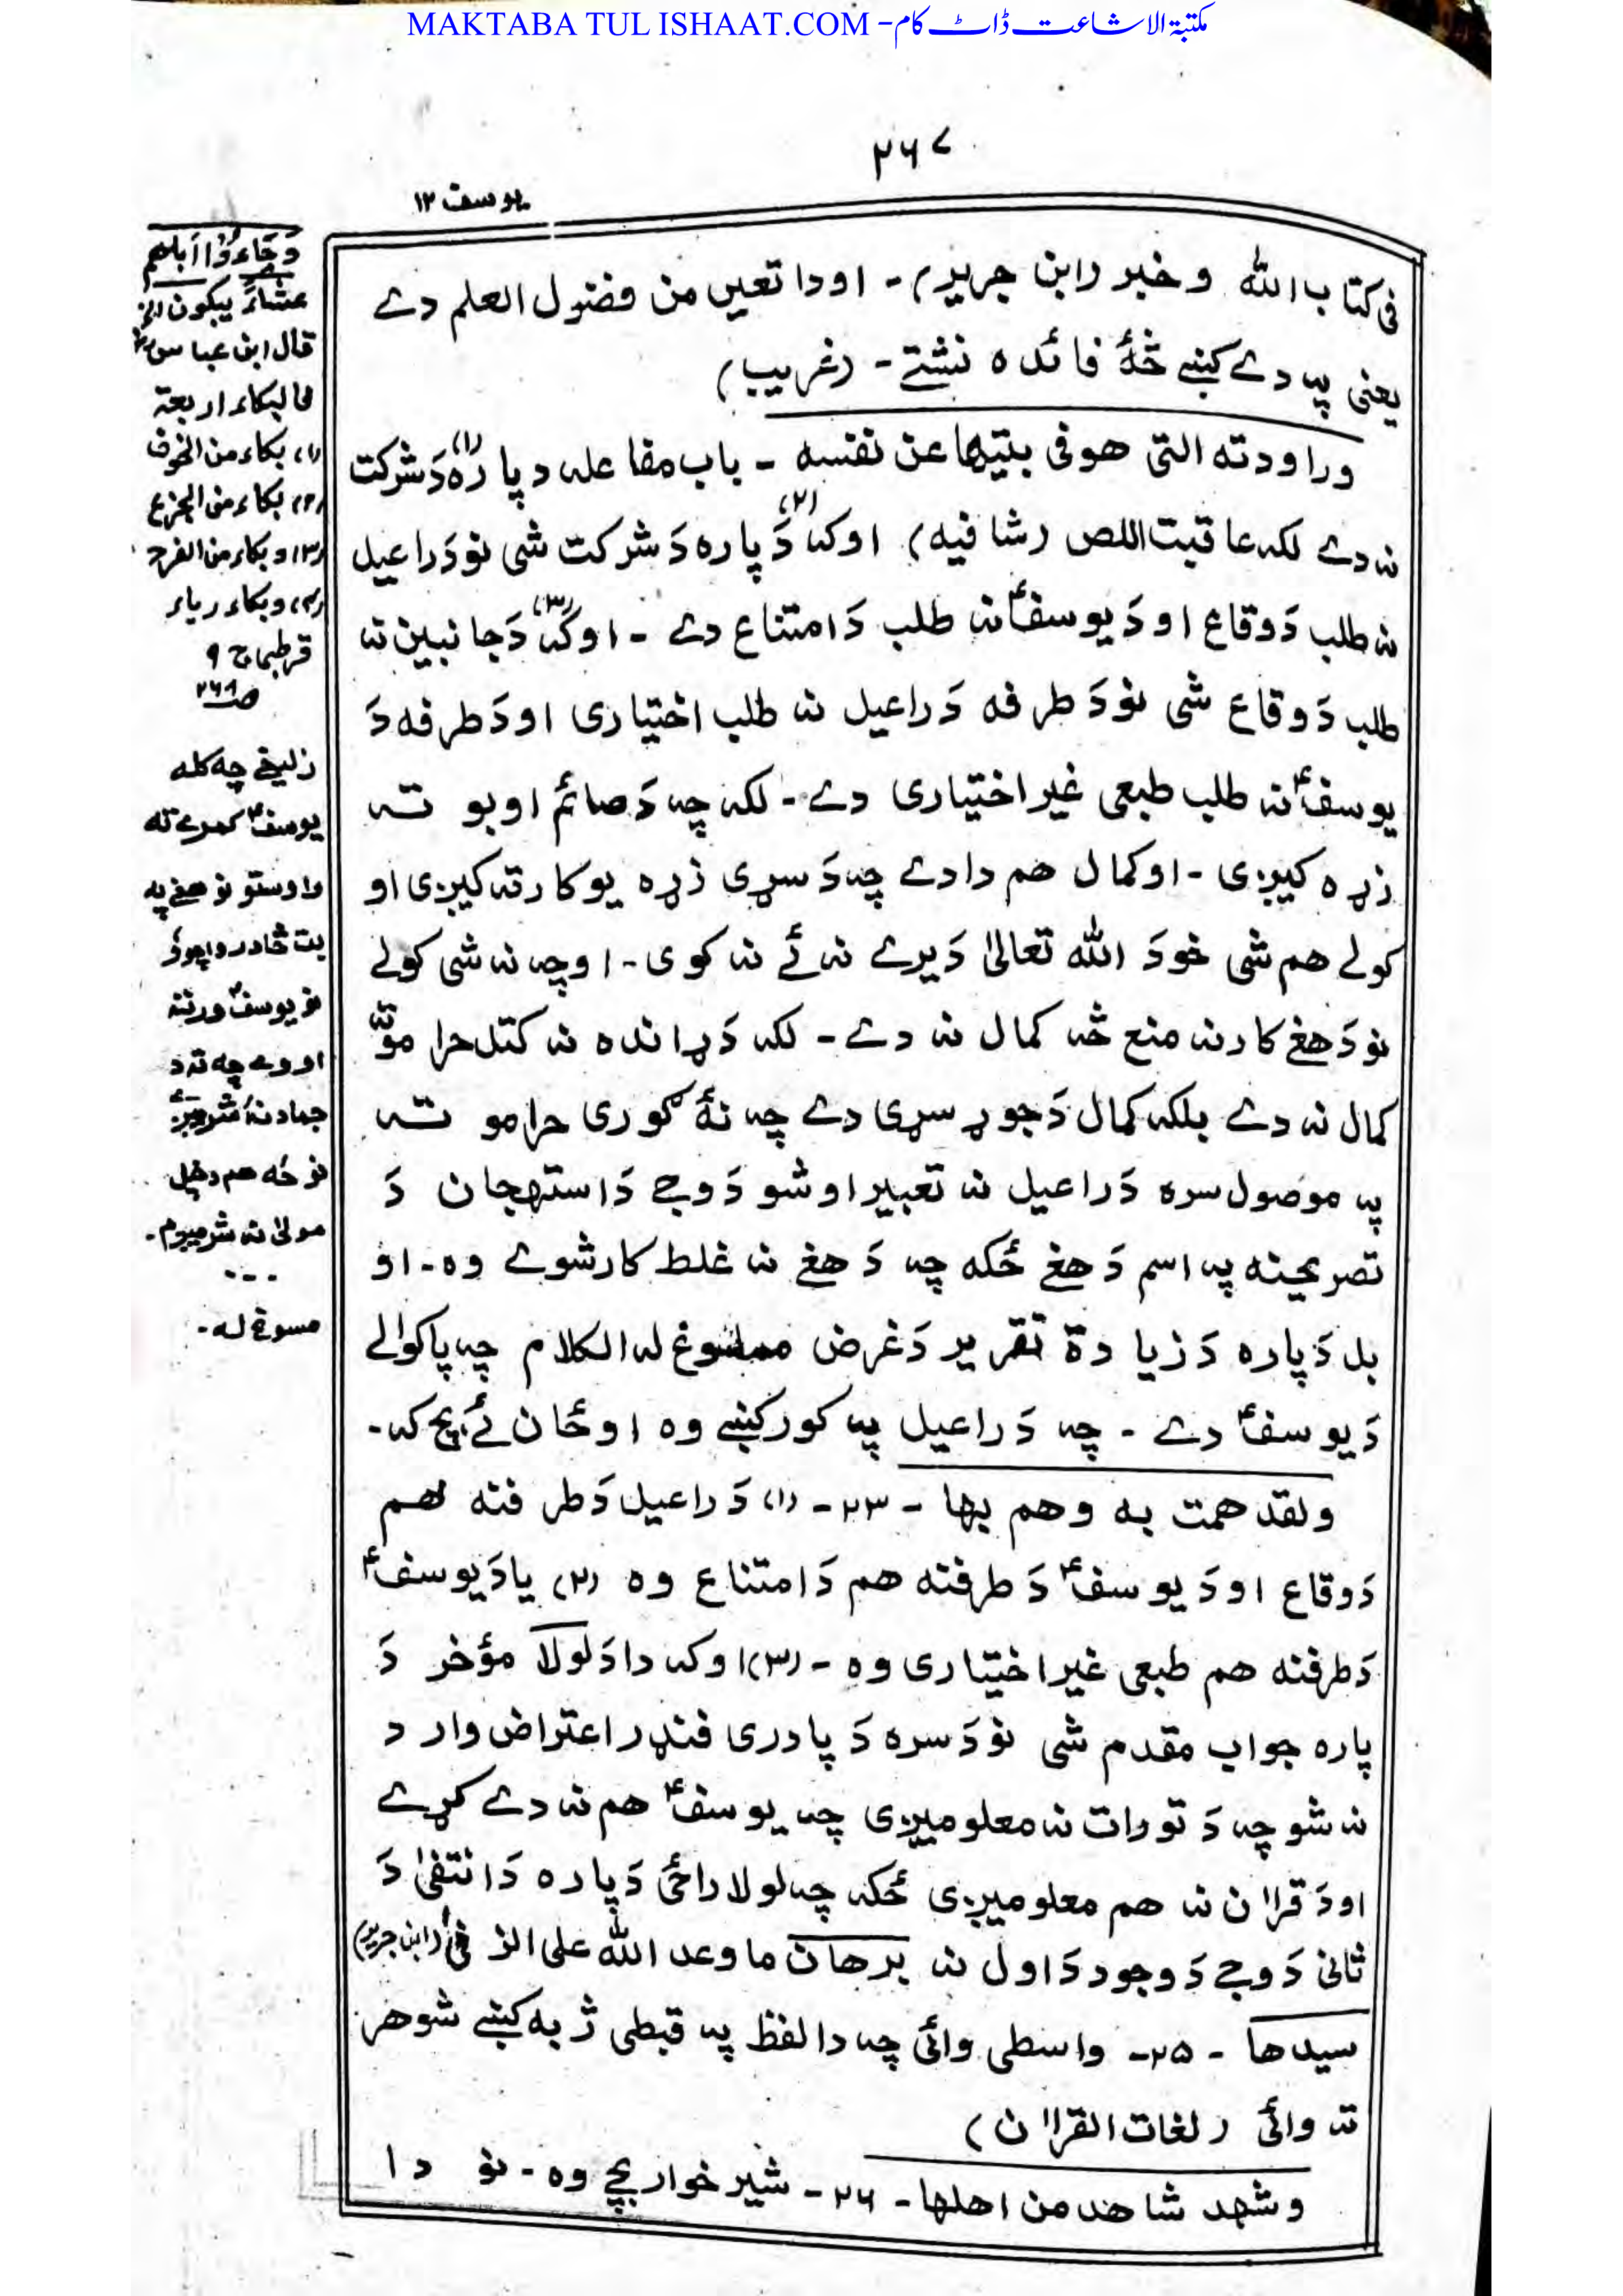 MAKTABA TUL ISHAAT.COM - مکتبۃ الاشاعت ڈاٹ کام
۲۶۷
یوسف ۱۲
فی کتاب الله وخبر (ابن جریر) - او دا تعین من فضول العلم دے
یعنی په دے کښے څۀ فائده نشتے - (غریب)
وراودته التی هو فی بیتها عن نفسه - باب مفاعله (۱) دپاره دَ شرکت
نه دے لکه عاقبت اللص (شافیه) او که (۲) دَپاره دَ شرکت شی نو دَ راعیل
نه طلب دَ وقاع او دَ یوسفؑ نه طلب دَ امتناع دے - او که (۳) دَ جانبین نه
طلب دَ وقاع شی نو دَ طرفه دَ راعیل نه طلب اختیاری او دَ طرفه دَ
یوسفؑ نه طلب طبعی غیر اختیاری دے - لکه چه دَ صائم اوبو ته
زړه کیږی - او کمال هم دا دے چه دَ سړی زړه یو کار ته کیږی او
کولے هم شی خو دَ الله تعالیٰ دَ یرے نه ئے نه کوی - او چه نه شی کولے
نو دَ هغے کار نه منع څه کمال نه دے - لکه دَ ړانده نه کتل حرامو ته
کمال نه دے بلکه کمال دَ جوړ سړی دے چه نۀ ګوری حرامو ته
په موصول سره دَ راعیل نه تعبیر اوشو دَ وجے دَ استهجان دَ
تصریحنه په اسم دَ هغے ځکه چه دَ هغے نه غلط کار شوے وه - او
بل دَپاره دَ زیادة تقریر دَ غرض مسوغ له الکلام چه پاکوالے
دَ یوسفؑ دے - چه دَ راعیل په کور کښے وه او ځان ئے بچ که -
ولقد همت به وهم بها - ۲۳ - (۱) دَ راعیل دَ طرفنه هم
دَ وقاع او دَ یوسفؑ دَ طرفنه هم دَ امتناع وه (۲) یا دَ یوسفؑ
دَ طرفنه هم طبعی غیر اختیاری وه - (۳) او که دا دَ لولا مؤخر دَ
پاره جواب مقدم شی نو دَ سره دَ پادری فنډر اعتراض وارد
نه شو چه دَ تورات نه معلومیږی چه یوسفؑ هم نه دے کړے
او دَ قراٰن نه هم معلومیږی ځکه چه لولا راځی دَپاره دَ انتفیٰ دَ
ثانی دَ وجے دَ وجود دَ اول نه برهان ما وعد الله علی الزنیٰ (ابن جریر)
سیدها - ۲۵ - واسطی وائی چه دا لفظ په قبطی ژبه کښے شوهر
ته وائی (لغات القراٰن)
وشهد شاهد من اهلها - ۲۶ - شیر خوار بچے وه - نو دا
وَجَاءُوٓا اَبَاهُم
عشاءً یبکون الخ
قال ابن عباس
فالبکاء اربعة
(۱) بکاء من الخوف
(۲) بکاء من الجزع
(۳) وبکاء من الفرح
(۴) وبکاء ریاء
قرطبی ج ۹
زلیخے چه کله
یوسفؑ کمرے ته
راوستو نو هغے په
بت څادر واچوؤ
نو یوسفؑ ورته
اووے چه ته د
جماد نه شرمیږئے
نو څه هم دخپل
مولیٰ نه شرمیږم -
- - -
مسوغ له -